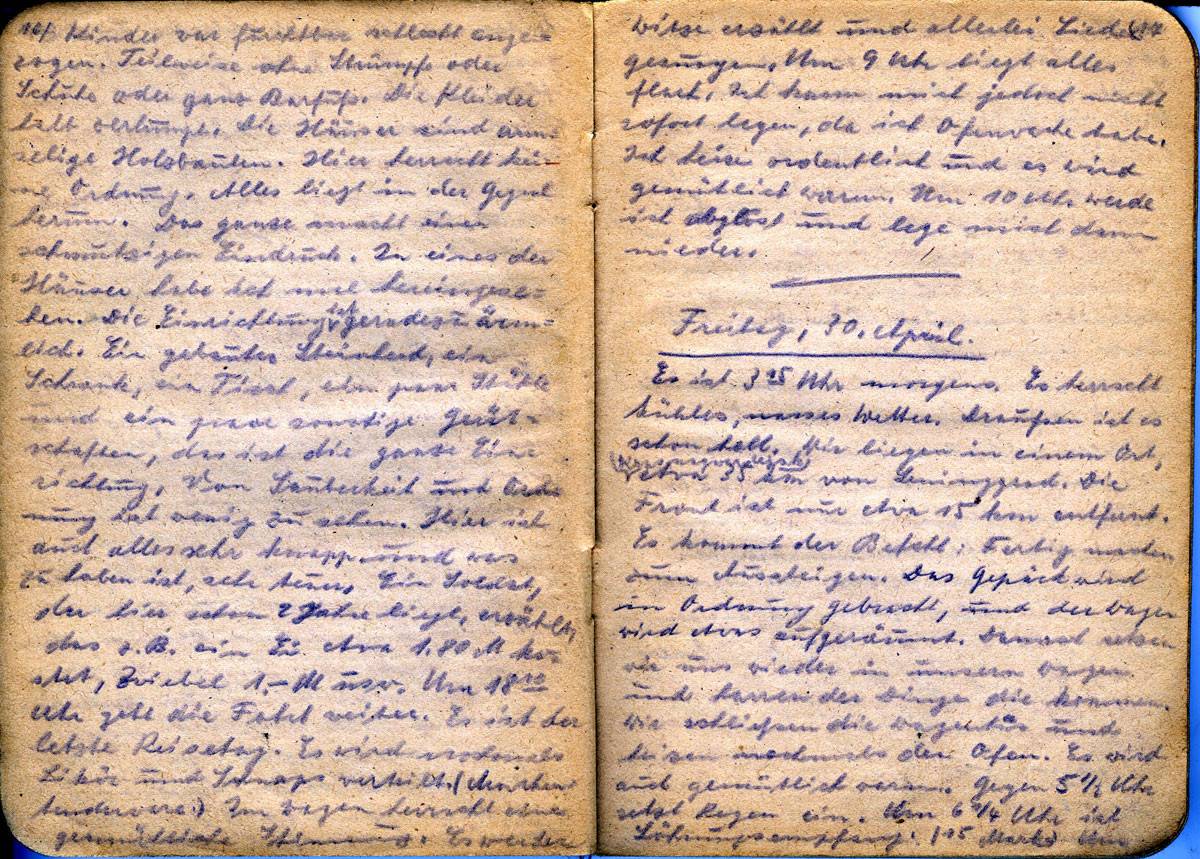 16/ Kinder war furchtbar schlecht ange=
zogen. Teilweise ohne Strümpfe oder
Schuhe oder ganz Barfuß. Die Kleider
halt verlumpt. Die Häuser sind arm=
selige Holzbauten. Hier herrscht kei=
ne Ordnung. Alles liegt in der Gegend
herum. Das ganze macht einen
schmutzigen Eindruck. In eines der
Häuser habe ich mal hereingese=
hen. Die Einrichtung ist geradezu ärm=
lich. Ein gebauter Steinherd, ein
Schrank, ein Tisch, ein paar Stühle
und ein paar sonstige Gerät=
schaften, das ist die ganze Ein=
richtung. Von Sauberkeit und Ord=
nung ist wenig zu sehen. Hier ist
auch alles sehr knapp und was
zu haben ist, sehr teuer. Ein Soldat,
der hier schon 2 Jahre liegt, erzählte,
das z.B. ein Ei etwa 1,80 M ko=
stet, Zwiebel 1,- M usw. Um 18
Uhr geht die Fahrt weiter. Es ist der
letzte Reisetag. Es wird nochmals
Likör und Schnaps verteilt. (Marke=
tenderware.) Im Wagen herrscht eine
gemütliche Stimmung. Es werden
Witze erzählt und allerlei Lieder /17
gesungen. Um 9 Uhr liegt alles
flach. Ich kann mich jedoch nicht
sofort legen, da ich Ofenwache habe.
Ich heize ordentlich und es wird
gemütlich warm. Um 10 Uhr werde
ich abgelöst und lege mich dann
nieder.
Freitag, 30. April.
Es ist 3 25 Uhr morgens. Es herrscht
kühles, nasses Wetter. Draußen ist es
schon hell. Wir liegen in einem Ort,
etwa 35 km von Leninggrad. Die
Front ist nur etwa 15 km entfernt.
Es kommt der Befehl: Fertig machen
zum Aussteigen. Das Gepäck wird
in Ordnung gebracht, und der Wagen
wird etwas aufgeräumt. Danach setzen
wir uns wieder in unsern Wagen
und harren der Dinge die kommen.
Wir schließen die Wagentür und
heizen nochmals den Ofen. Es wird
auch gemütlich warm. Gegen 5 1/2 Uhr
setzt Regen ein. Um 6 1/4 Uhr ist
Löhnungsempfang. Mark) Um